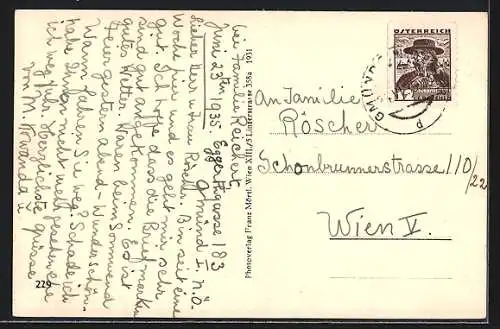 bei Familie Reichert
Juni 23ten 1935. Eggertgasse 183
Gmünd I. N.Ö.
Lieber Herr u. Frau Röscher. Bin seit eine
Woche hier und es geht mir sehr
gut. Ich hoffe dass die Briefmarken
sind gut angekommen. Es ist
gutes Wetter. Waren beim Sonnwend
feier gestern abend - Wunderschön.
Wann fahren Sie weg? Schade ich
habe Ihnen nicht mehr gesehen ehe
ich weg fuhr. Herzlichste Grüsse
von M.
229
Photoverlag Franz Mörtl, Wien XIII/5 Linzerstrasse 358a 1931
ÖSTERREICH
12
GMÜND
An Familie
Röscher
Schönbrunnerstrasse 110/22
Wien V.